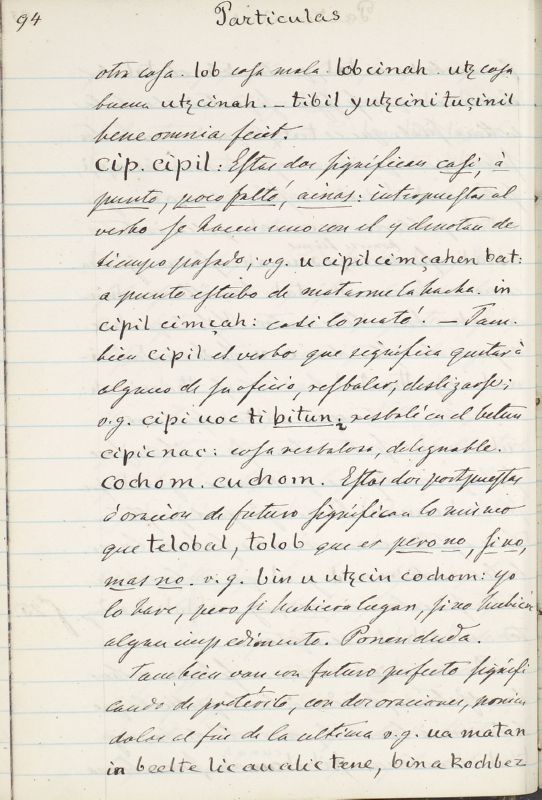 94
Particulas
otra cosa. lob cosa mala. lobcinah. utz cosa
buena utzcinah. - tibil y utzcini tuçinil
bene omnia fecit.
cip. cipil: Estas dos significan casi, à
punto, poco faltó, ainas: intropuestas al
verbo se hacen uno con el y denotan de
tiempo pasado; v.g. u cipil cimçahen bat:
a punto estubo de matarme la hacha. in
cipil cimçah: casi lo mató. - Tam-
bien cipil el verbo que significa quitar à
alguno de su oficio, resbalar, deslizarse;
v.g. cipi uoc ti bitun; resbalé en el betun
cipicnac: cosa resbalosa, delegnable.
cochom. cuchom. Estas dos postpuestas
à oracion de futuro significan lo mismo
que telobal, tolob que es pero no, si no,
mas no. v.g. bin u utzcin cochom: yo
lo haré, pero si hubiera lugar, si no hubier
algun impedimento. Ponen duda.
Tambien van con futuro perfecto signifi
cando de pretérito, con dos oraciones, ponien
dolas al fin de la ultima v.g. ua matan
in beelte lic au alic tene, bin a kochbez